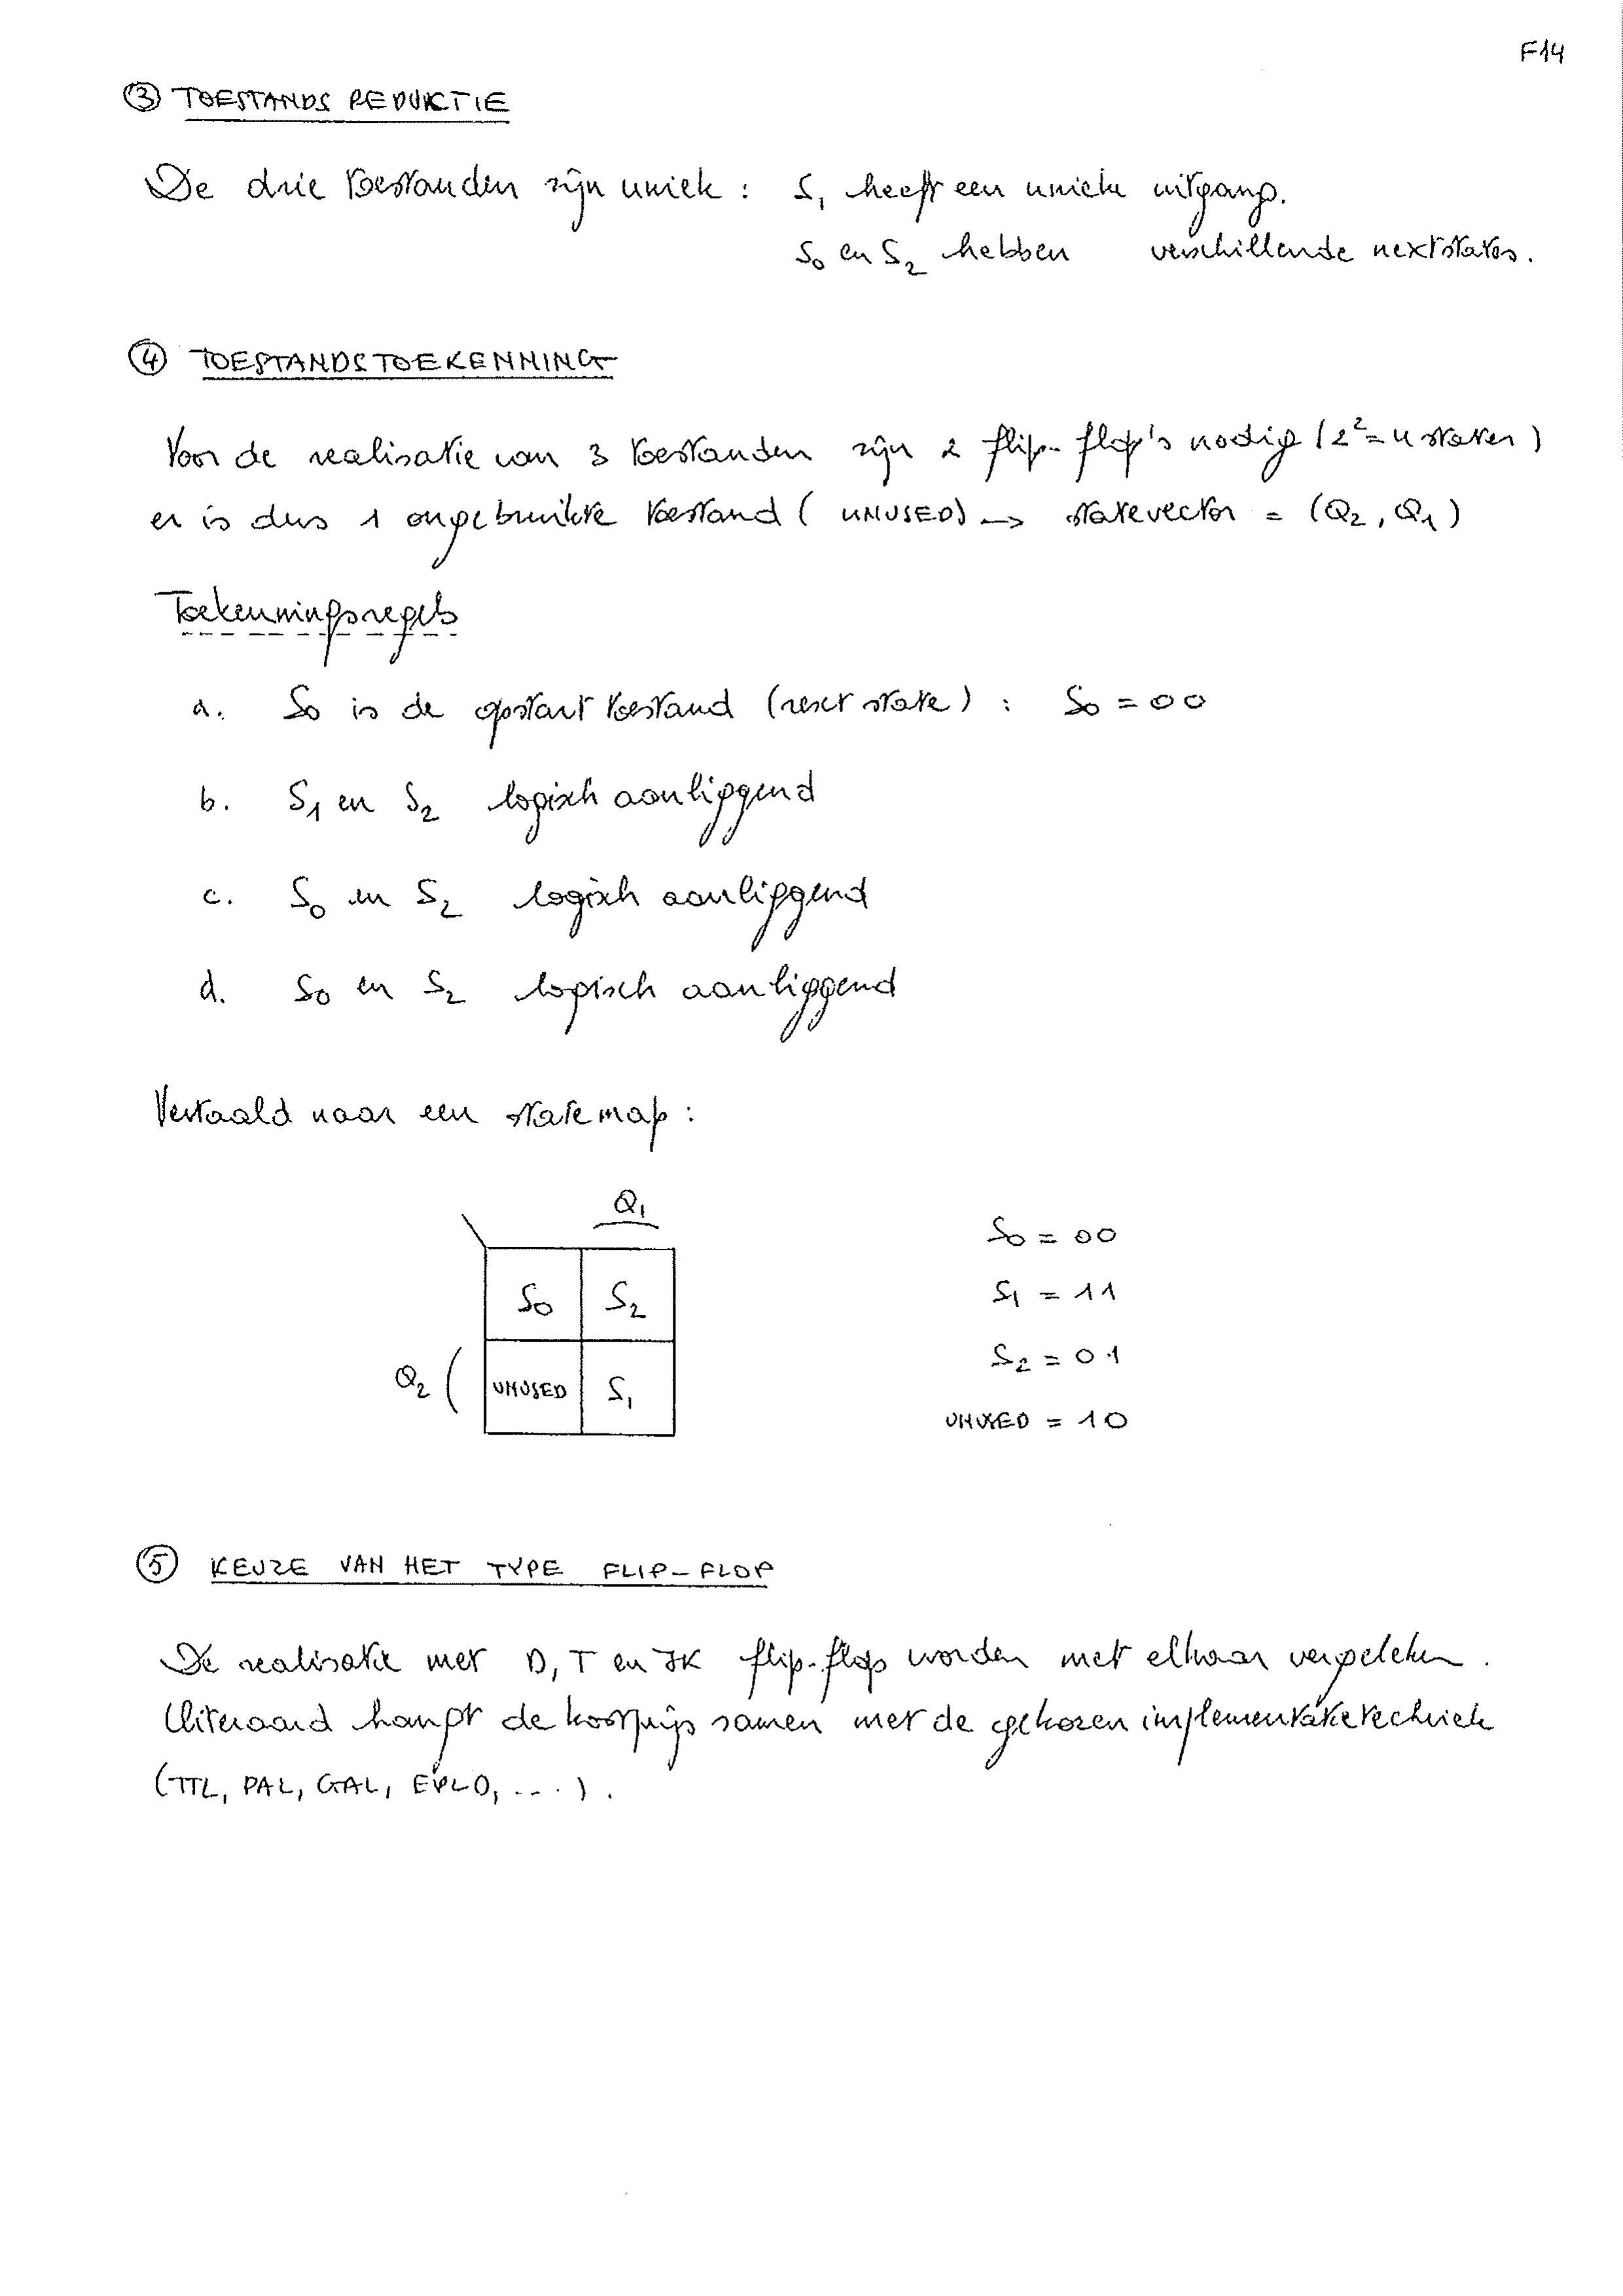 F14
③ TOESTANDS REDUKTIE
De drie toestanden zijn uniek : S₁ heeft een unieke uitgang.
S₀ en S₂ hebben verschillende nextstates.
④ TOESTANDSTOEKENNING
Voor de realisatie van 3 toestanden zijn 2 flip-flop's nodig (2² = 4 states)
er is dus 1 ongebruikte toestand ( UNUSED) → statevector = (Q₂, Q₁)
Toekenningsregels
a. S₀ is de opstart toestand (reset state) : S₀ = 00
b. S₁ en S₂ logisch aanliggend
c. S₀ en S₂ logisch aanliggend
d. S₀ en S₂ logisch aanliggend
Vertaald naar een statemap :
Q₁
S₀ S₂
Q₂ ( UNUSED S₁
S₀ = 00
S₁ = 11
S₂ = 01
UNUSED = 10
⑤ KEUZE VAN HET TYPE FLIP-FLOP
De realisatie met D, T en JK flip-flop worden met elkaar vergeleken.
Uiteraard hangt de kostprijs samen met de gekozen implementatietechniek
(TTL, PAL, GAL, EPLD, ....).